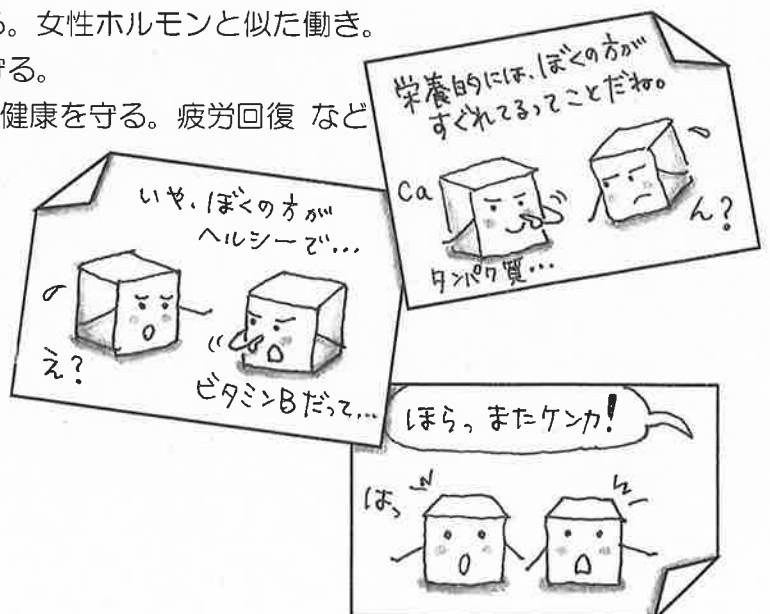 る。女性ホルモンと似た働き。
守る。
健康を守る。疲労回復 など
栄養的には、ぼくの方が
すぐれてるってことだね。
Ca
ん?
タンパク質…
いや、ぼくの方が
ヘルシーで…
え?
ビタミンBだって…
ほらっ またケンカ!
はっ